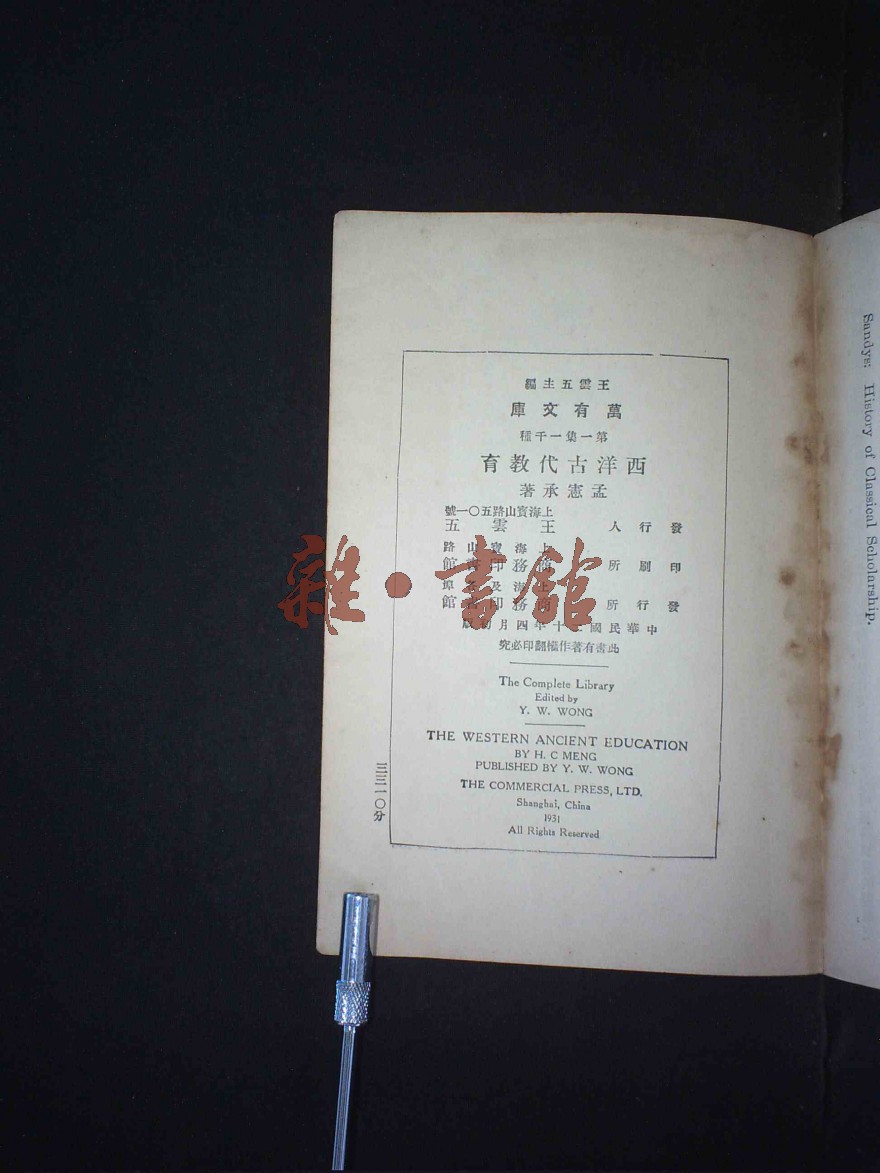 王雲五主編
萬有文庫
第一集一千種
西洋古代教育
孟憲承著
上海寶山路五〇一號
發行人 王雲五
上海寶山路
印刷所 商務印書館
上海及各埠
發行所 商務印書館
中華民國二十年四月初版
此書有著作權翻印必究
The Complete Library
Edited by
Y. W. WONG
THE WESTERN ANCIENT EDUCATION
BY H. C MENG
PUBLISHED BY Y. W. WONG
THE COMMERCIAL PRESS, LTD.
Shanghai, China
1931
All Rights Reserved
三三一〇分
Sandys: History of Classical Scholarship.
雜·書館